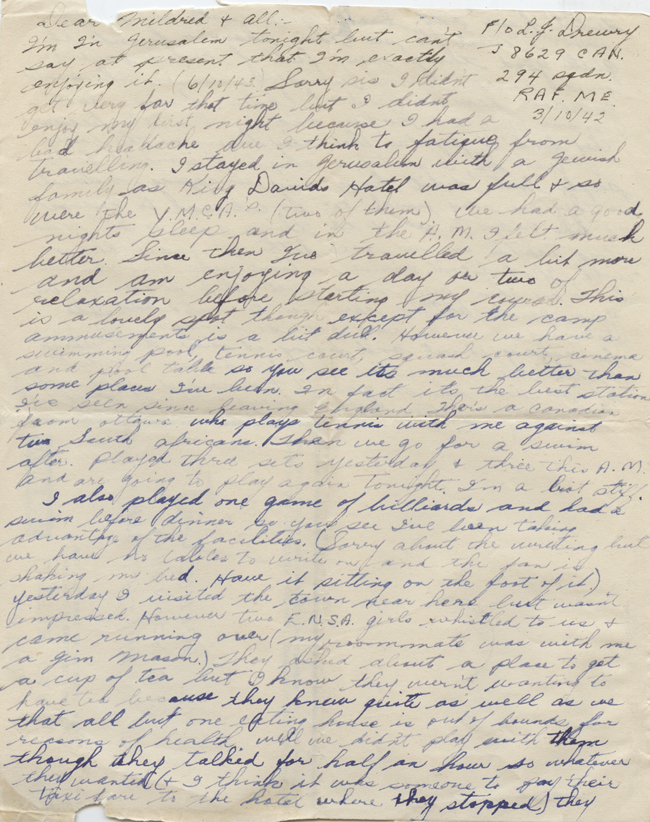 Dear Mildred & all:-
F/O L.J. Drewry
J 8629 CAN.
294 sqdn.
RAF. ME.
3/10/42
I'm in Jerusalem tonight but can't
say at present that I'm exactly
enjoying it. (6/10/42 Sorry sis I didn't
get very far that time but I didn't
enjoy my first night because I had a
bad headache due I think to fatigue from
travelling. I stayed in Jerusalem with a Jewish
family as King Davids Hotel was full & so
were the Y.M.C.A.'s (two of them). We had a good
nights sleep and in the A.M. I felt much
better. Since then I've travelled a bit more
and am enjoying a day or two of
relaxation before starting my course. This
is a lovely spot though except for the camp
ammusements is a bit dull. However we have a
swimming pool, tennis court, squash court, cinema
and pool table so you see its much better than
some places I've been. In fact its the best station
I've seen since leaving England. Theres a canadian
from ottawa who plays tennis with me against
two South africans. Then we go for a swim
after. Played three sets yesterday & three this A.M.
and are going to play again tonight. I'm a bit stiff.
I also played one game of billiards and had a
swim before dinner so you see I've been taking
advantage of the facilities. (Sorry about the writing but
we have no tables to write on and the fan is
shaking my bed. Have it sitting on the foot of it)
Yesterday I visited the town near here but wasn't
impressed. However two E.N.S.A. girls whistled to us &
came running over (my roommate was with me
a Jim Mason.) They asked about a place to get
a cup of tea but I know they wern't wanting to
have tea because they knew quite as well as we
that all but one eating house is out of bounds for
reasons of health. Well we didn't play with them
though they talked for half an hour so whatever
they wanted (& I think it was someone to pay their
taxi fare to the hotel where they stopped) they